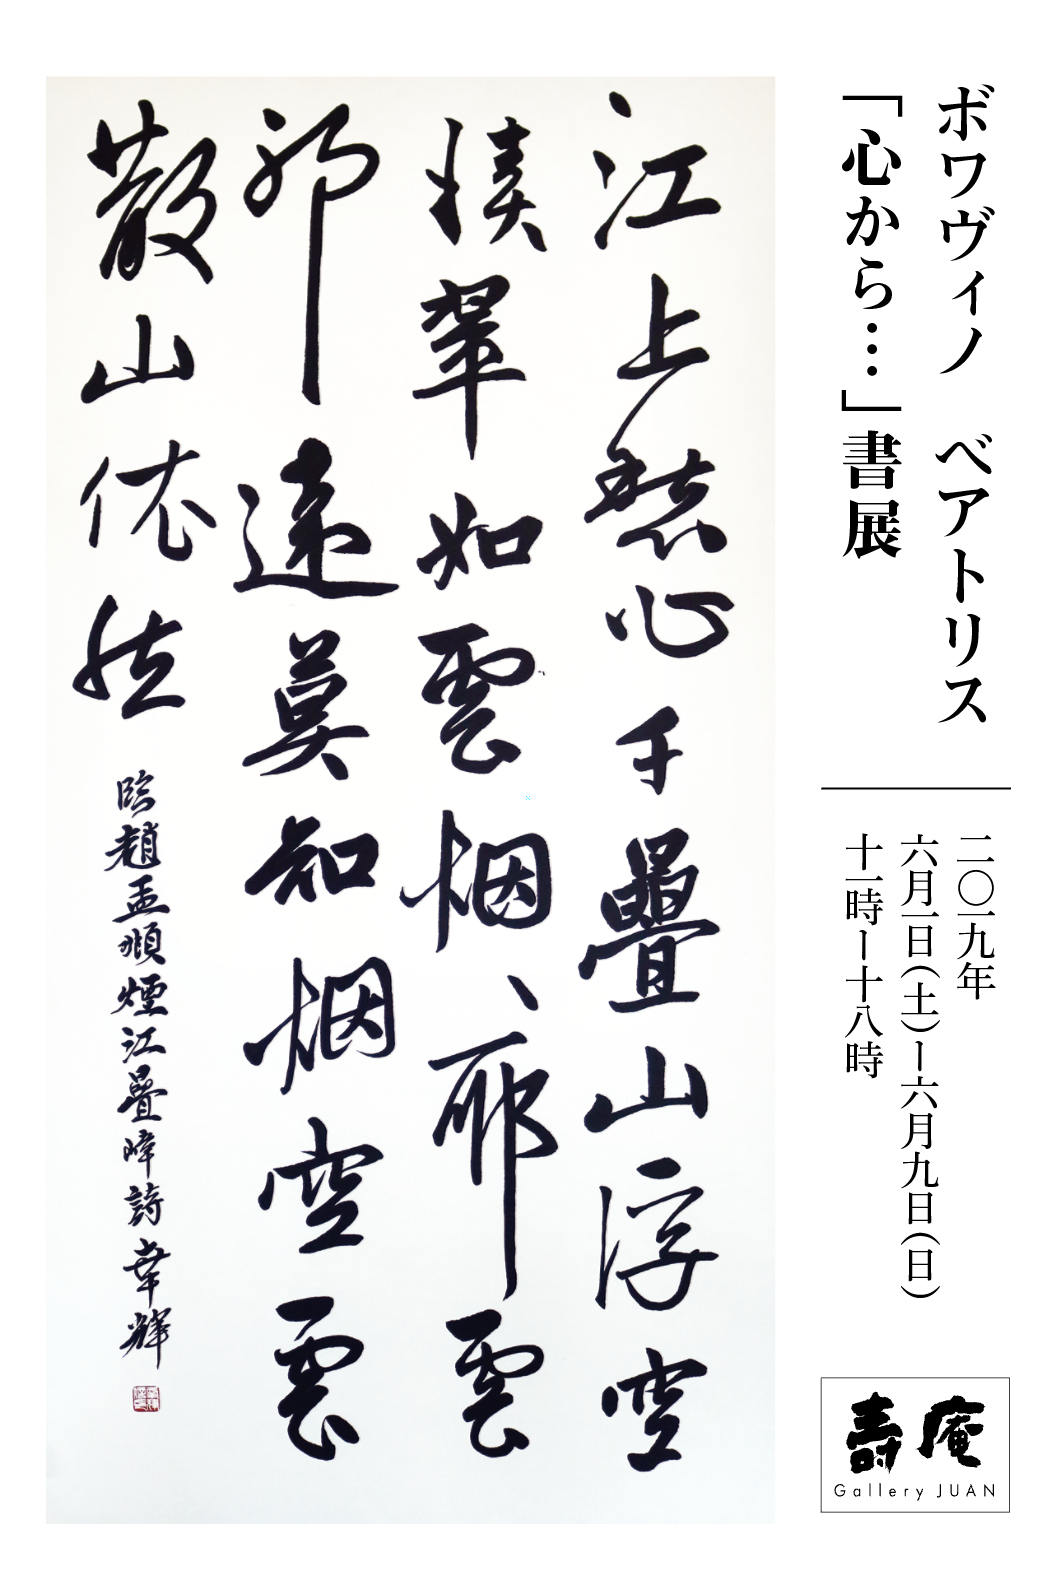 ボワヴィノ　ベアトリス
「心から…」書展
二〇一九年
六月一日(土)ー六月九日(日)
十一時ー十八時
壽庵
Gallery JUAN
江上愁心千疊山浮空
積翠如雲烟、耶雲
邪遠莫知烟空雲
散山依然
臨趙孟頫煙江疊嶂詩 幸輝